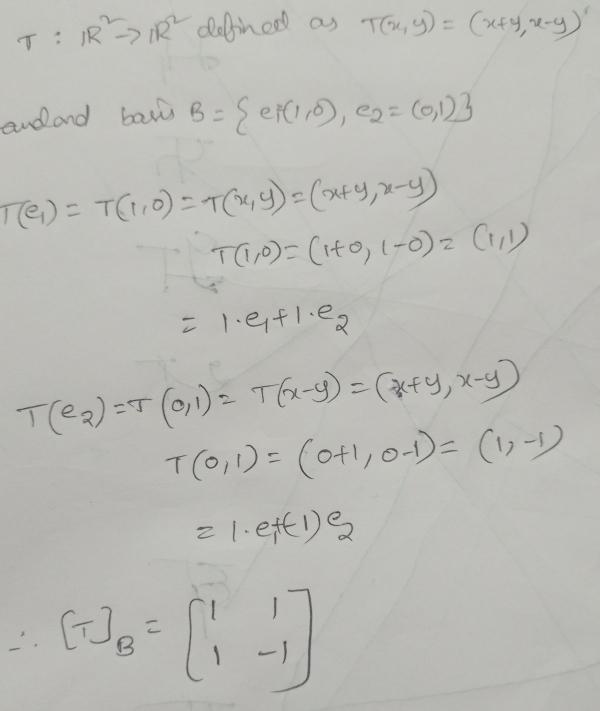 T : ℝ² → ℝ² defined as T(x,y) = (x+y, x-y)
andard basis B = { e₁(1,0), e₂ = (0,1)}
T(e₁) = T(1,0) = T(x,y) = (x+y, x-y)
T(1,0) = (1+0, 1-0) = (1,1)
= 1·e₁+1·e₂
T(e₂) = T(0,1) = T(x-y) = (x+y, x-y)
T(0,1) = (0+1, 0-1) = (1,-1)
= 1·e₁+(-1)e₂
∴ [T]_B = [1 1
1 -1]